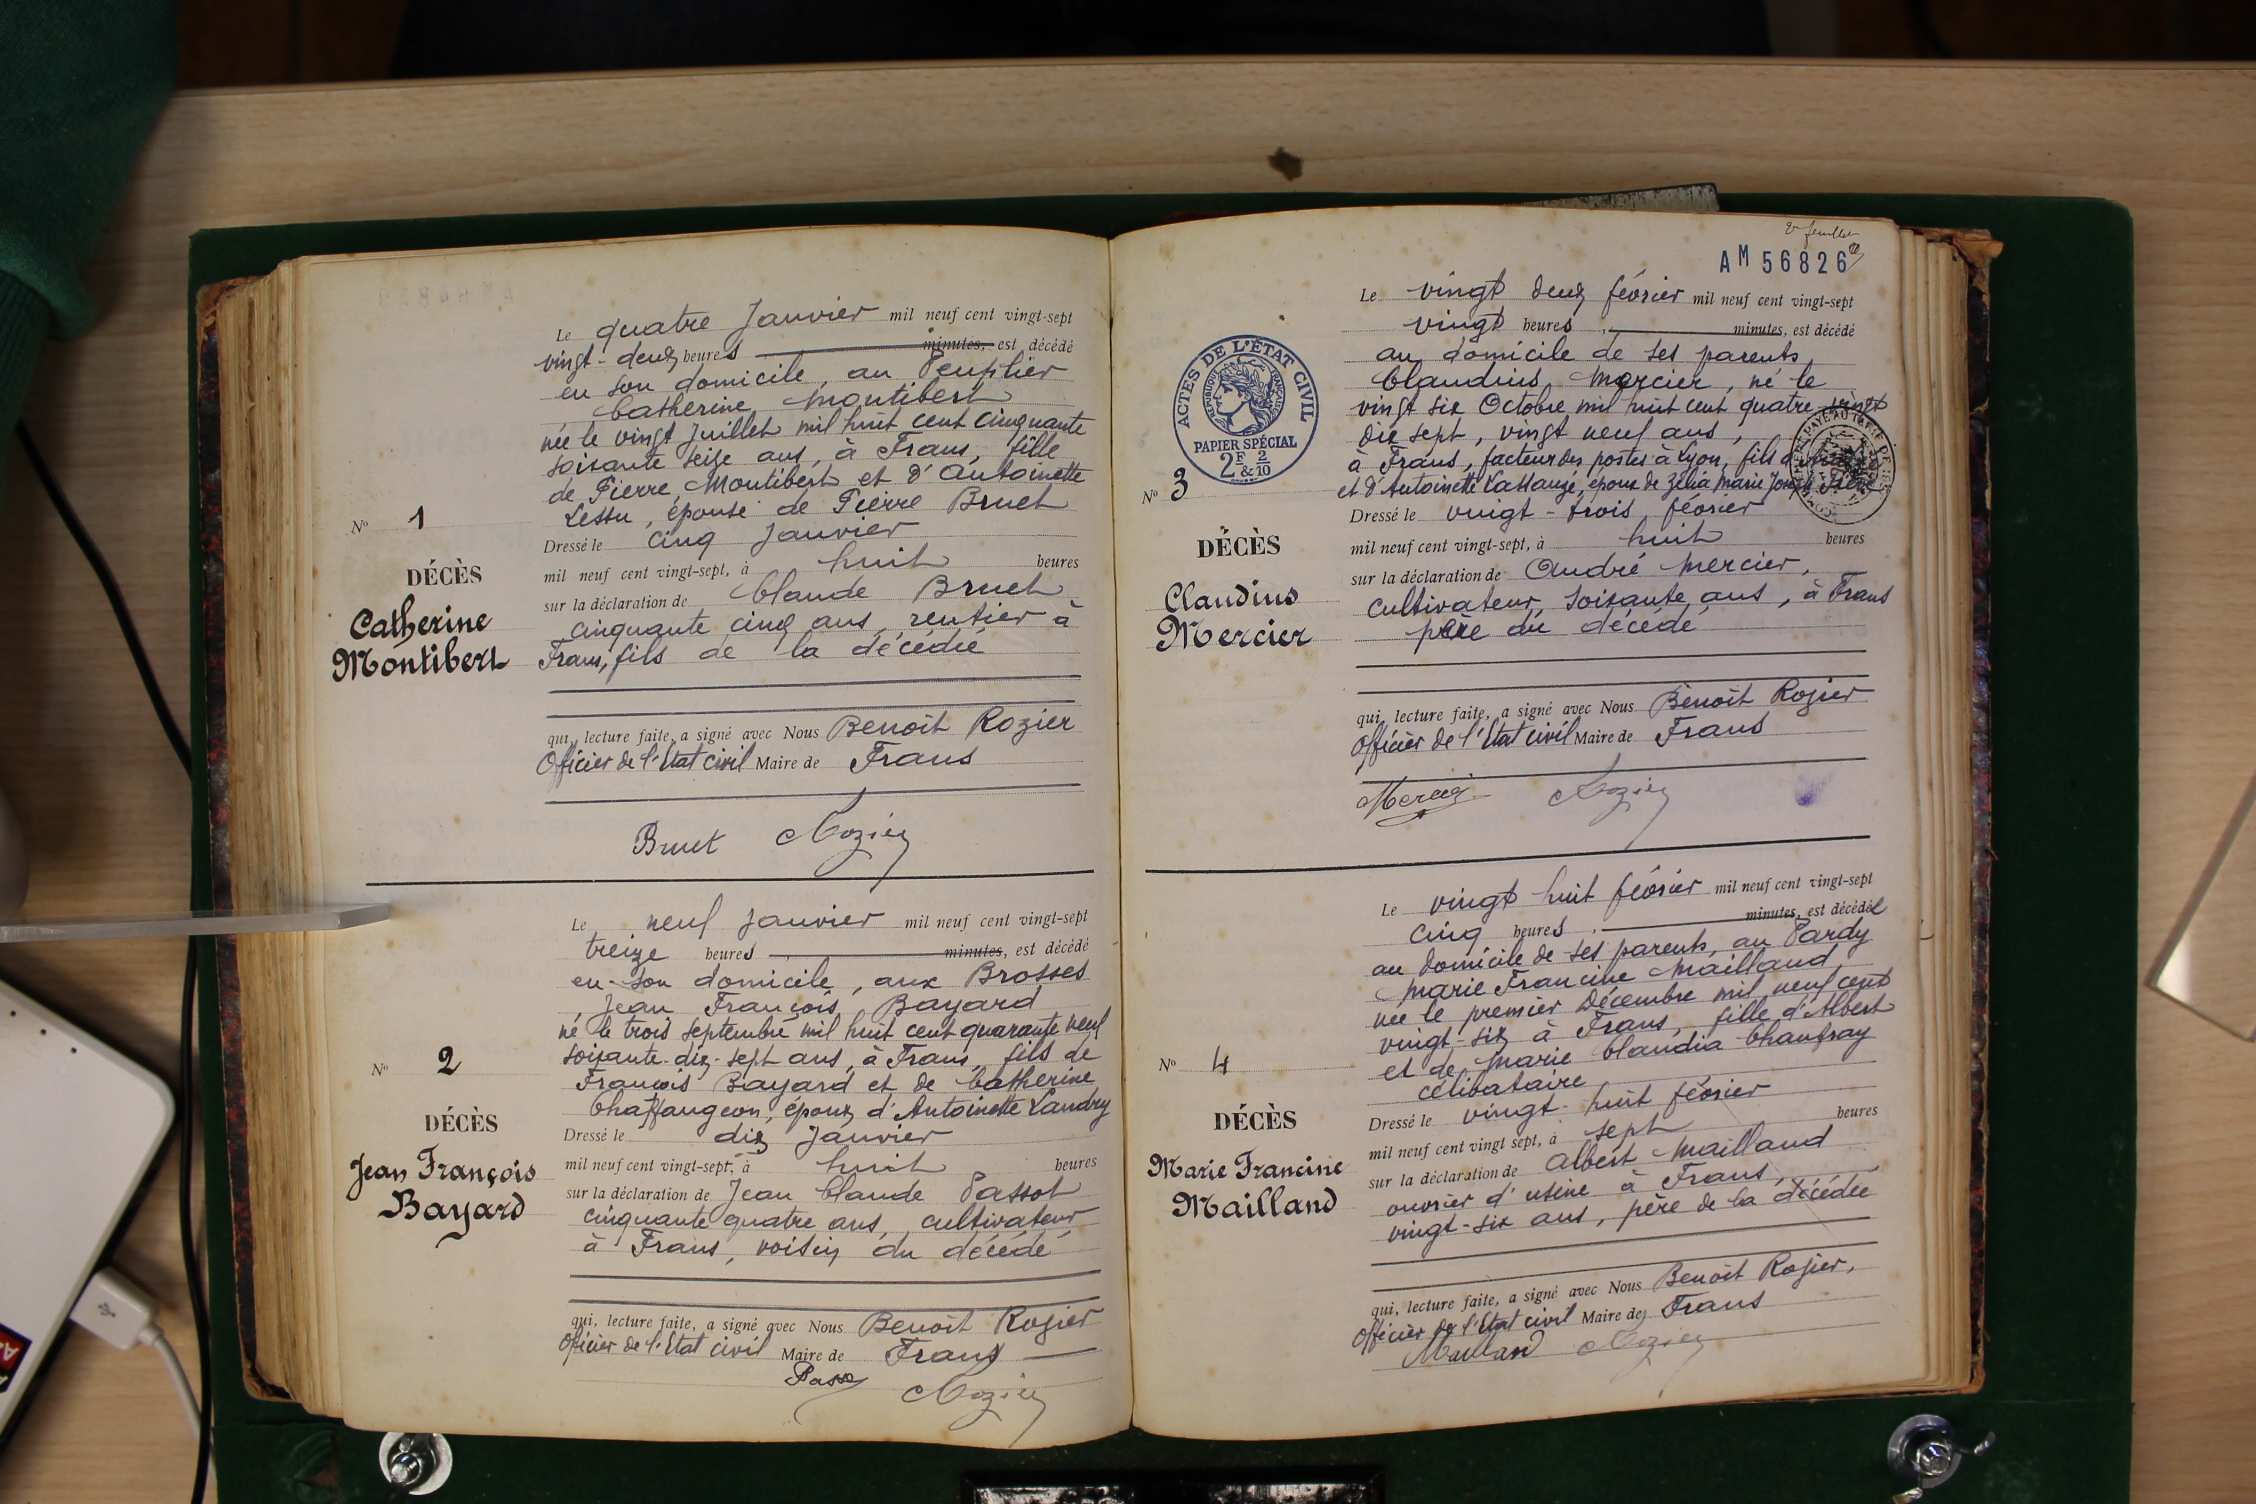 Le quatre Janvier mil neuf cent vingt-sept
vingt-deux heures minutes, est décédé
en son domicile, au Peuplier
Catherine Montibert
née le vingt Juillet mil huit cent cinquante
soixante seize ans, à Frans, fille
de Pierre Montibert et d'Antoinette
épouse de Pierre Bruet
Nº 1
DÉCÈS
Catherine
Montibert
Dressé le cinq Janvier
mil neuf cent vingt-sept, à huit heures
sur la déclaration de Claude Bruet
cinquante cinq ans, rentier à
Frans, fils de la décédée
qui, lecture faite, a signé avec Nous Benoît Rozier
Officier de l'Etat civil Maire de Frans
Bruet Rozier
Le neuf Janvier mil neuf cent vingt-sept
treize heures minutes, est décédé
en son domicile, aux Brosses
Jean François Bayard
né le trois septembre mil huit cent quarante neuf
soixante-dix-sept ans, à Frans, fils de
François Bayard et de Catherine
Chaffangeon, époux d'Antoinette Landry
Nº 2
DÉCÈS
Jean François
Bayard
Dressé le dix Janvier
mil neuf cent vingt-sept, à huit heures
sur la déclaration de Jean Claude Passot
cinquante quatre ans, cultivateur
à Frans, voisin du décédé
qui, lecture faite, a signé avec Nous Benoît Rozier
Officier de l'Etat civil Maire de Frans
Rozier
2e feuillet
AM 56826
ACTES DE L'ÉTAT CIVIL
RÉPUBLIQUE FRANÇAISE
PAPIER SPÉCIAL
2F & 2/10
Le vingt deux février mil neuf cent vingt-sept
vingt heures minutes, est décédé
au domicile de ses parents
Claudius Mercier, né le
vingt six Octobre mil huit cent quatre vingt
dix sept, vingt neuf ans,
à Frans, facteur des postes à Lyon, fils
et d'Antoinette époux de Zélia Marie Joseph
Nº 3
DÉCÈS
Claudius
Mercier
Dressé le vingt-trois février
mil neuf cent vingt-sept, à huit heures
sur la déclaration de André Mercier,
cultivateur, soixante ans, à Frans
père du décédé
qui, lecture faite, a signé avec Nous Benoît Rozier
Officier de l'Etat civil Maire de Frans
Mercier Rozier
Le vingt huit février mil neuf cent vingt-sept
cinq heures minutes, est décédée
au domicile de ses parents, au Pardy
Marie Francine Mailland
née le premier Décembre mil neuf cent
vingt-six à Frans, fille d'Albert
et de Marie Claudia Chanfray
célibataire
Nº 4
DÉCÈS
Marie Francine
Mailland
Dressé le vingt-huit février
mil neuf cent vingt sept, à sept heures
sur la déclaration de Albert Mailland
ouvrier d'usine à Frans,
vingt-six ans, père de la décédée
qui, lecture faite, a signé avec Nous Benoît Rozier,
Officier de l'Etat civil Maire de Frans
Mailland Rozier